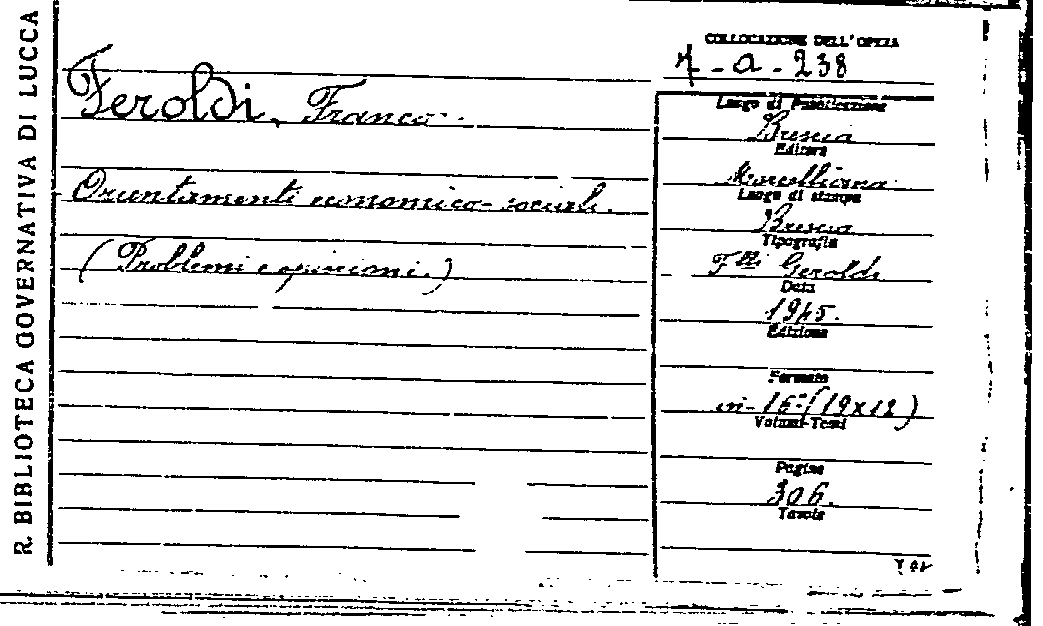 R. BIBLIOTECA GOVERNATIVA DI LUCCA
COLLOCAZIONE DELL'OPERA
7 - a - 238
Feroldi, Franco
Orientamenti economico-sociali.
(Problemi e opinioni.)
Luogo di Pubblicazione
Brescia
Editore
Morcelliana
Luogo di stampa
Brescia
Tipografia
F.lli Geroldi
Data
1945.
Edizione
Formato
in-16° (19x12)
Volumi-Tomi
Pagine
306.
Tavole